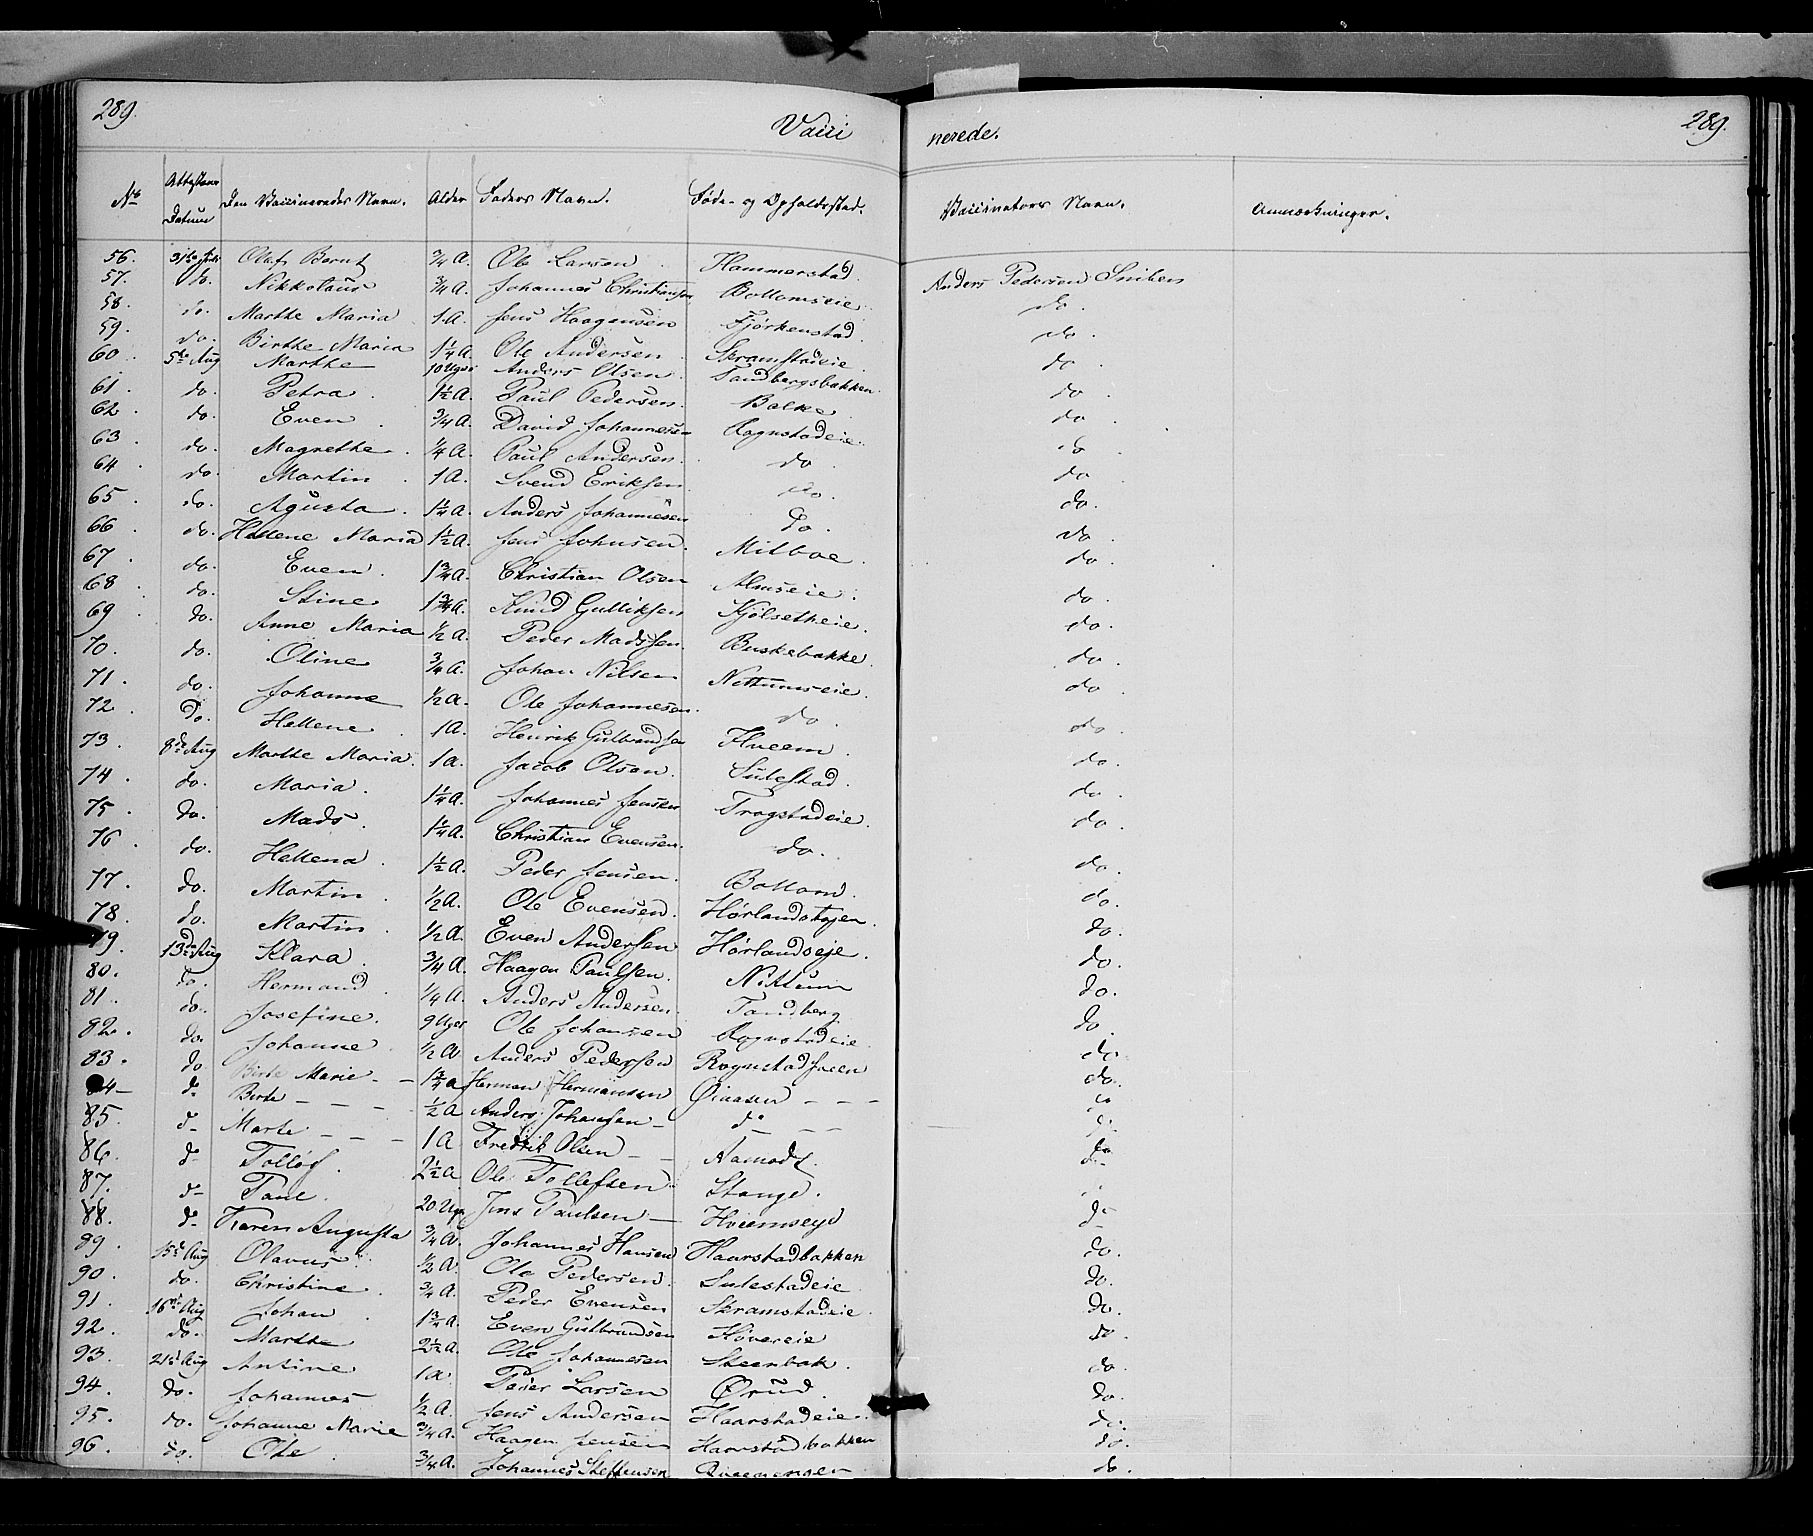 289. Vacci nerede. 289.
No Attestens Datum Den Vaccineredes Navn. Alder Faders Navn. Føde- og Opholdssted. Vaccinators Navn. Anmærkninger.
56. 31te Juli Olaf Bernt 3/4 A. Ole Larsen Hammerstad Anders Pedersen Sniben
57. do. Nikkolaus 3/4 A. Johannes Christiansen Bollomseie do.
58. do. Marthe Maria 1 A. Jens Haagensen Fjørkenstad do.
59. do. Birthe Maria 1 1/4 A. Ole Andersen Skramstadeie do.
60. 5te Aug Marthe 10 Uger Anders Olsen Tandbergsbakken do.
61. do. Petra 1 1/2 A. Paul Pedersen. Balke do.
62. do. Even 3/4 A. David Johannesen Rognstadeie do.
63. do. Magrethe 1/4 A. Paul Andersen. do. do.
64. do. Martin 1 A. Svend Eriksen do. do.
65. do. Agusta 1 1/4 A. Anders Johannesen do. do.
66. do. Hellene Maria 1 1/2 A. Jens Johnsen. Milboe do.
67. do. Even 1 3/4 A. Christian Olsen Almseie do.
68. do. Stine 1 3/4 A. Knud Gulliksen Kjølsetheie. do.
69. do. Anne Maria 1/2 A. Peder Madssen. Buskebakke. do.
70. do. Oline 3/4 A. Johan Nilsen Nettumseie. do.
71. do. Johanne 1/2 A. Ole Johannesen. do. do.
72. do. Hellene 1 A. Henrik Gulbrandsen Hveem. do.
73. 8de Aug Marthe Maria. 1 A. Jacob Olsen. Sulestad. do.
74. do. Maria. 1 1/4 A. Johannes Jensen Trogstadeie. do.
75. do. Mads. 1 1/4 A. Christian Evensen. do. do.
76. do. Hellena 1 1/2 A. Peder Jensen. Bollom. do.
77. do. Martin 1/2 A. Ole Evensen. Hørlandstøjen. do.
78. do. Martin 1/2 A. Even Andersen Hørlandseje. do.
79. 13de Aug Klara 3/4 A. Haagen Paulsen. Nittum do.
80. do. Hermand 1/4 A. Anders Andersen. Tandberg do.
81. do. Josefine. 9 Uger Ole Johansen Rognstadeie do.
82. do. Johanne 1/2 A. Anders Pedersen Rognstadsveen do.
83. do Birte Marie 1 3/4 a Herman Hermansen Øiaasen do.
84 do Berte 1/2 a Anders Johansen do do
85. do Marte 1 A Fredrik Olsen Aamodt. do
86. do Tolløf. 2 1/2 a Ole Tollefsen Stange. do
87. do Paul. 20 Ug. Jens Paulsen Hveemseye
88. do Karen Augusta 3/4 A. Johannes Hansen Haarstadbakken do
89. 15de Aug Olavus 1/2 A. Ole Pedersen. Sulestadeie do.
90. do. Christine 3/4 A. Peder Evensen Skramstadeie do.
91. 16de Aug Johan 1 3/4 A. Even Gulbrandsen Høvereie do.
92. do. Marthe 2 1/2 A. Ole Johannesen Steenbak. do.
93. 21de Aug Antine 1 a. Peder Larsen Ørud. do.
94. do. Johannes 1/2 A. Jens Andersen Haarstadeie. do.
95. do. Johanne Marie 3/4 A. Haagen Jensen Haarstadbakken do.
96. do. Ole 3/4 A. Johannes Steffensen do.